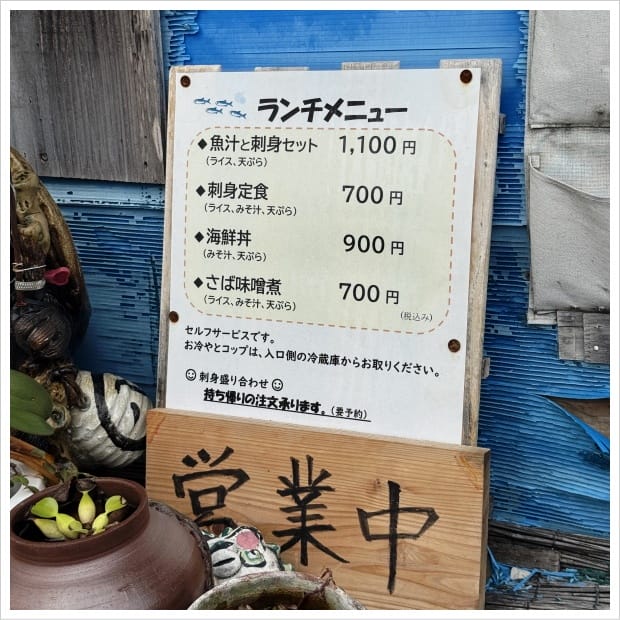 ランチメニュー
◆魚汁と刺身セット 1,100円
(ライス、天ぷら)
◆刺身定食 700円
(ライス、みそ汁、天ぷら)
◆海鮮丼 900円
(みそ汁、天ぷら)
◆さば味噌煮 700円
(ライス、みそ汁、天ぷら)
(税込み)
セルフサービスです。
お冷やとコップは、入口側の冷蔵庫からお取りください。
☺刺身盛り合わせ☺
持ち帰りの注文承ります。(要予約)
営業中